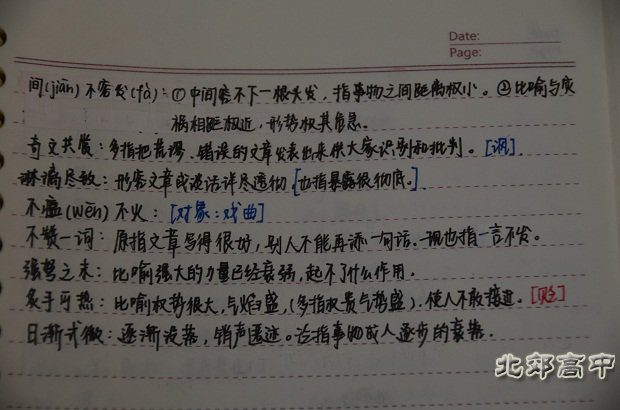 Date:
Page:
间(jiān)不容发(fà)：①中间容不下一根头发，指事物之间距离极小。②比喻与灾
祸相距极近，形势极其危急。
奇文共赏：多指把荒谬、错误的文章发表出来供大家识别和批判。[讽]
淋漓尽致：形容文章或谈话详尽透彻[也指暴露很彻底。]
不瘟(wēn)不火：[对象：戏曲]
不赞一词：原指文章写得很好，别人不能再添一句话。现也指一言不发。
强弩之末：比喻强大的力量已经衰弱，起不了什么作用。
炙手可热：比喻权势很大，气焰盛，(多指权贵气势盛)，使人不敢接近。[贬]
日渐式微：逐渐没落，销声匿迹。泛指事物或人逐步的衰落。
北郊高中